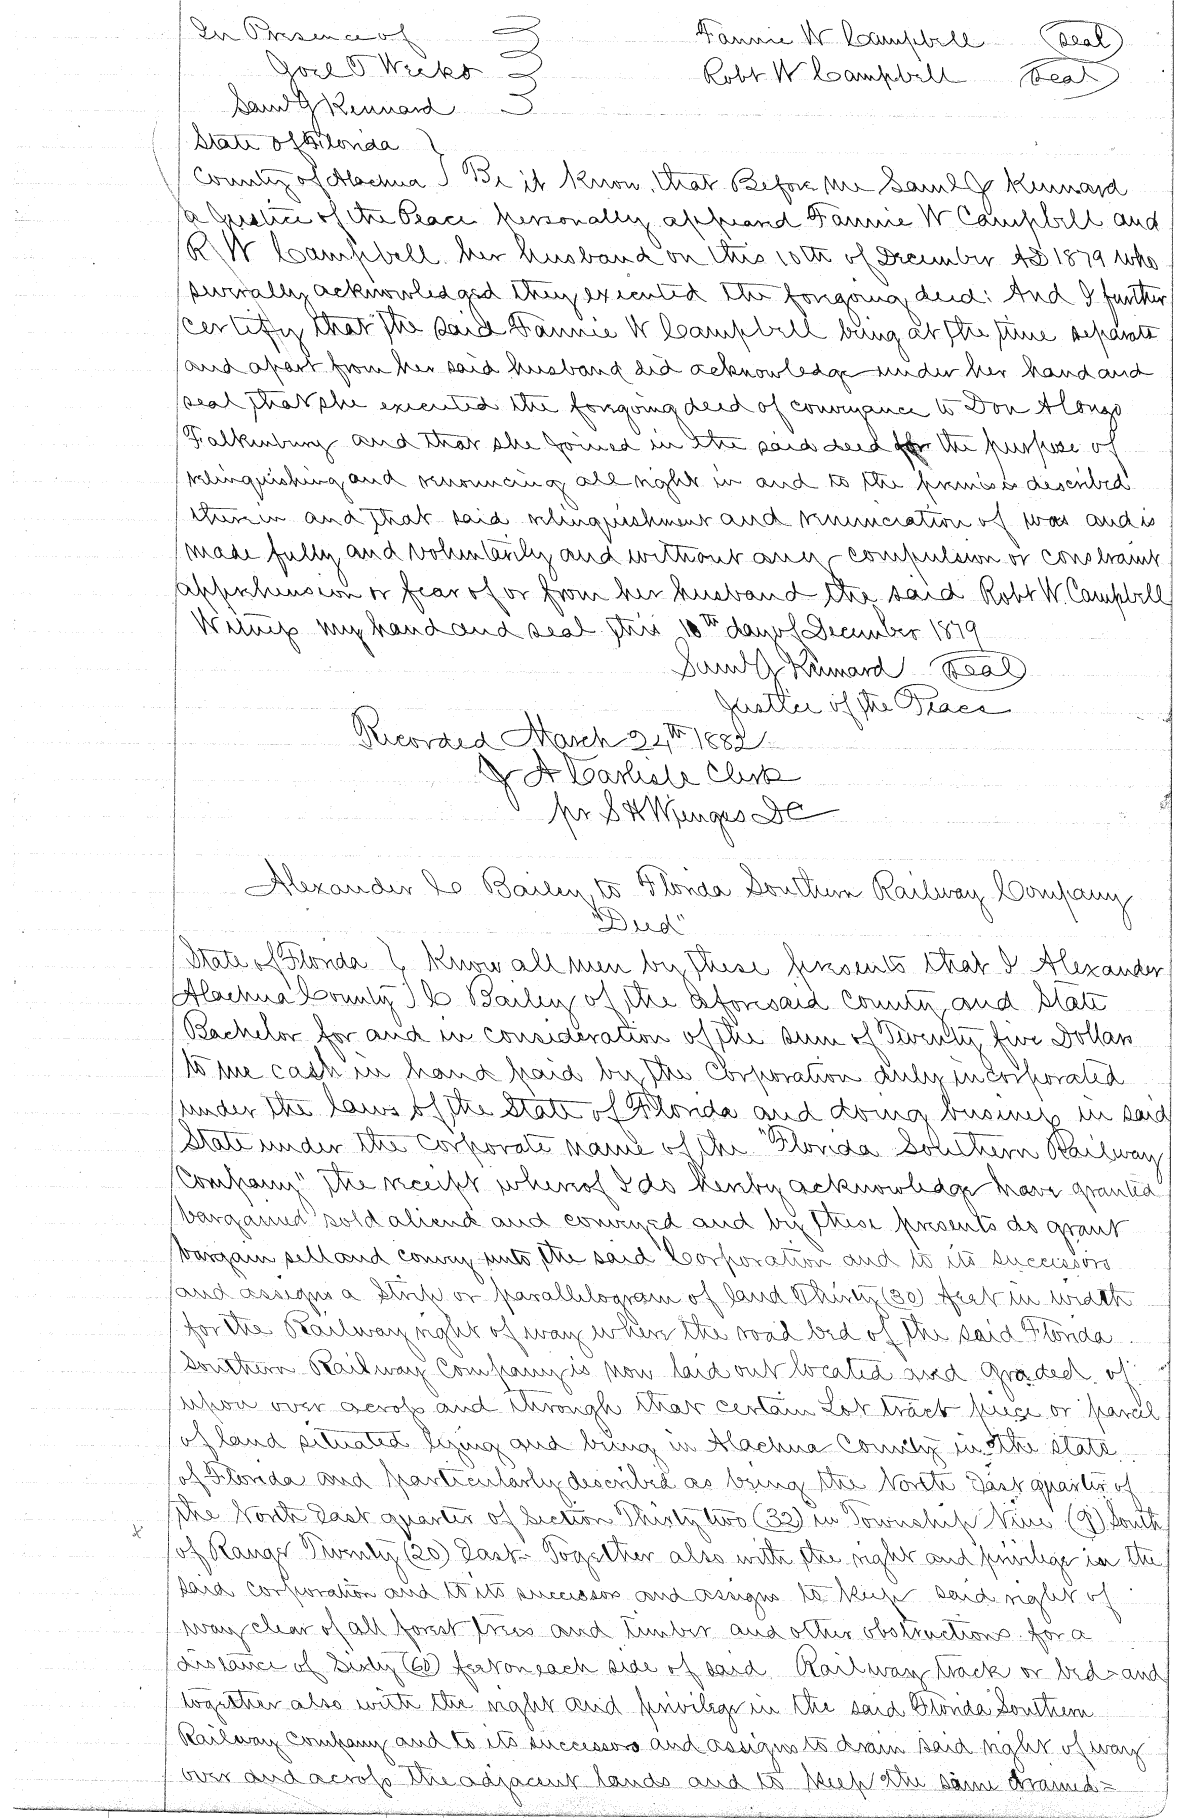 In Presence of Fannie W Campbell (Seal)
Joel T Weeks Robt W Campbell (Seal)
Saml J Kennard
State of Florida }
County of Alachua } Be it know, that Before me Saml J Kennard
a Justice of the Peace personally appeard Fannie W Campbell and
R W Campbell her husband on this 10th of December AD 1879 who
severally acknowledged they executed the forgoing deed: And I further
certify that the said Fannie W Campbell being at the time separate
and apart from her said husband did acknowledge under her hand and
seal that she executed the forgoing deed of conveyance to Don Alonzo
Falkenburg and that she joined in the said deed for the purpose of
relinquishing and renouncing all right in and to the premises described
therein and that said relinquishment and renunciation of was and is
made fully and voluntarily and without any compulsion or constraint
apprehension or fear of or from her husband the said Robt W. Campbell
Witness my hand and seal this 10th day of December 1879
Saml J Kennard (Seal)
Justice of the Peace
Recorded March 24th 1882
J A Carlisle Clerk
pr S H Wienges DC
Alexander C Bailey to Florida Southern Railway Company
"Deed"
State of Florida } Know all men by these presents that I Alexander
Alachua County } C Bailey of the aforesaid County and State
Bachelor for and in consideration of the sum of Twenty five Dollars
to me cash in hand paid by the Corporation duly incorporated
under the laws of the State of Florida and doing business in said
State under the Corporate name of the "Florida Southern Railway
Company" the receipt whereof I do hereby acknowledge have granted
bargained sold aliend and conveyed and by these presents do grant
bargain sell and convey unto the said Corporation and to its successors
and assigns a Strip or parallelogram of land Thirty (30) feet in width
for the Railway right of way where the road bed of the said Florida
Southern Railway Company is now laid out located and graded of
upon over across and through that certain Lot tract piece or parcel
of land situated lying and being in Alachua County in the state
of Florida and particularly described as being the North East quarter of
the North East quarter of Section Thirty two (32) in Township Nine (9) South
of Range Twenty (20) East Together also with the right and privilege in the
said corporation and to its successors and assigns to keep said right of
way clear of all forest trees and timber and other obstructions for a
distance of Sixty (60) feet on each side of said Railway track or bed and
together also with the right and privilege in the said Florida Southern
Railway Company and to its successors and assigns to drain said right of way
over and across the adjacent lands and to keep the same drained=